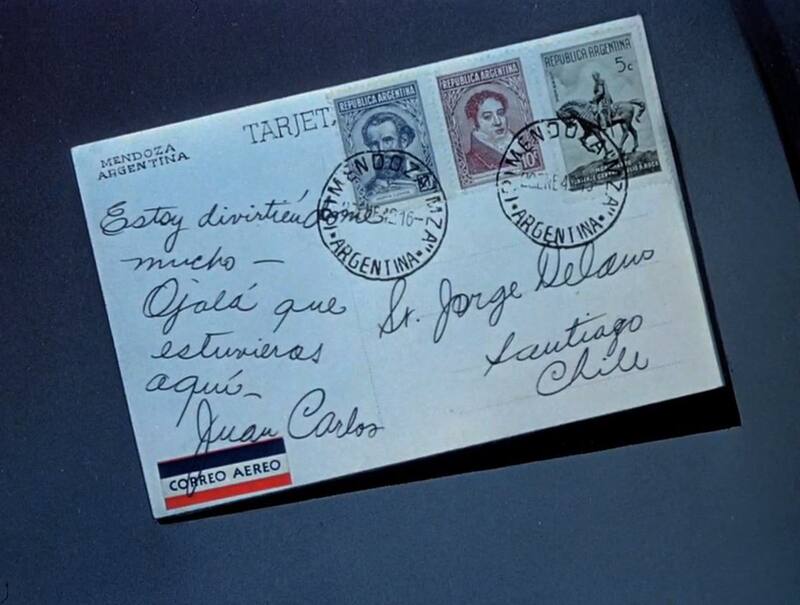 MENDOZA
ARGENTINA
TARJETA
REPUBLICA ARGENTINA
REPUBLICA ARGENTINA
10
REPUBLICA ARGENTINA
5c
MENDOZA
ARGENTINA
MENDOZA
ARGENTINA
Estoy divirtiéndome
mucho —
Ojalá que
estuvieras
aquí —
Juan Carlos
Sr. Jorge Delano
Santiago
Chile
CORREO AEREO